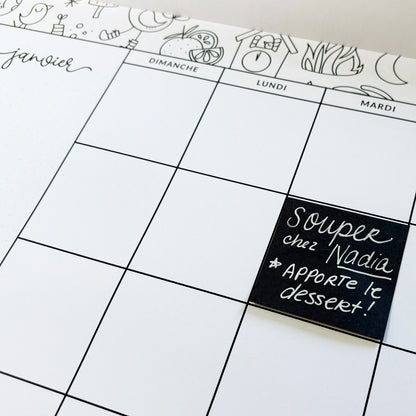 janvier
DIMANCHE LUNDI MARDI
Souper
chez Nadia
* APPORTE le
dessert!